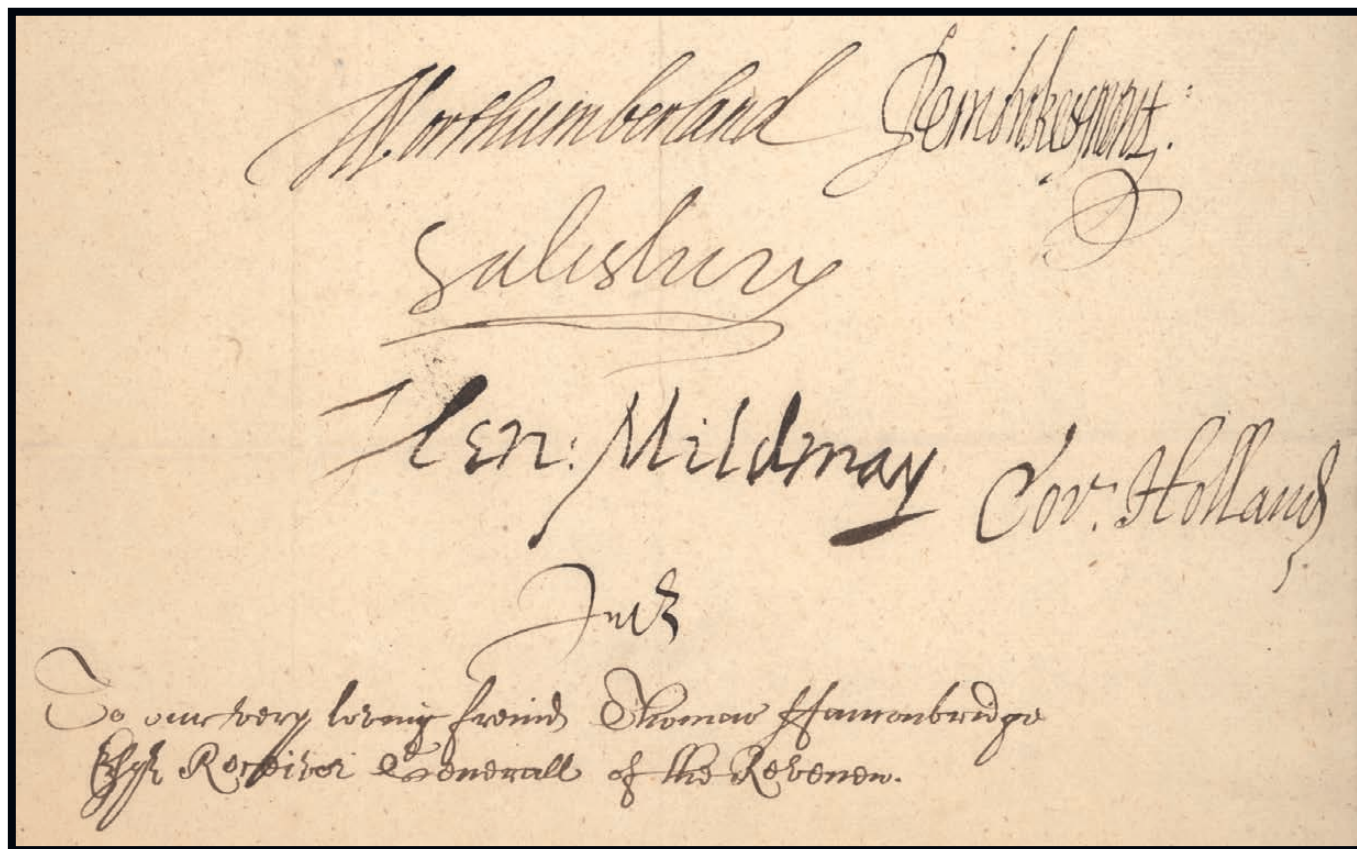 Northumberland Pembroke & Mont:
Salisbury
Hen: Mildmay Cor: Holland
To our very loving freind Thomas ffauconbridge
Esqr Receivor Generall of the Revenew.